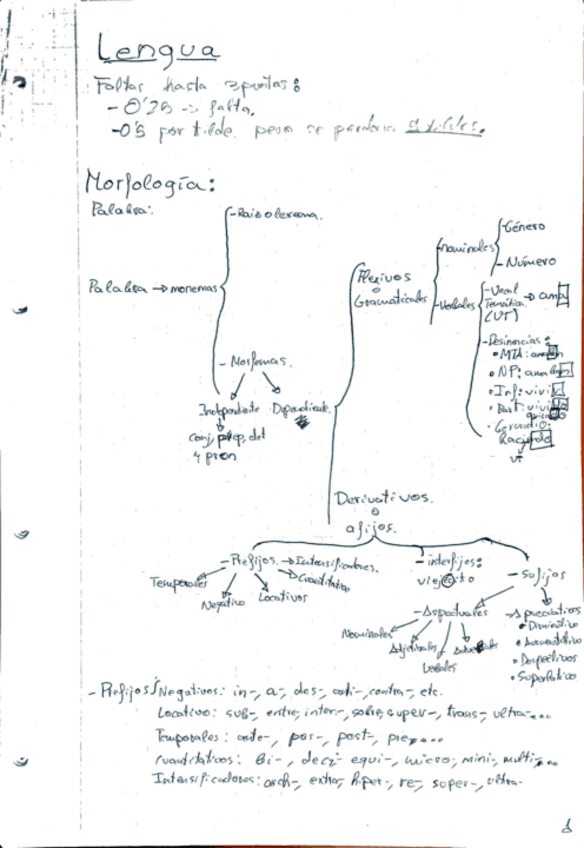 Lengua
Faltas hasta 3 puntos:
- 0'25 -> falta.
- 0'5 por tilde.
Morfología:
Palabra:
Palabra → monemas
- Raiz o lexema.
- Morfemas.
Independente Dependiente
conj, prep, det
y pron
Flexivos
o
Gramaticales
nominales
- Género
- Número
Verbales
- Vocal
Temática → ama
(VT)
- Desinencias:
• MTA:
• NP:
• Inf: vivi
• Part:
• Gerundio:
VT
Derivativos.
o
afijos.
- Prefijos. → Intensificadores.
Cuantitativo
Temporales
Negativo
Locativos
- interfijos:
viejecito
- Sufijos
- Aspectuales
Nominales
Adjetivales
Verbales
- Apreciativos
• Diminutivo
• Aumentativo
• Despectivos
• Superlativo
- Prefijos Negativos: in-, a-, des-, anti-, contra-, etc.
Locativo: sub-, entre, inter-, sobre, super-, trans-, ultra-...
Temporales: ante-, pos-, post-, pre...
Cuantitativos: Bi-, deci- equi-, micro, mini-, multi-...
Intensificadores: arch-, extra, hiper-, re-, super-, ultra-
1